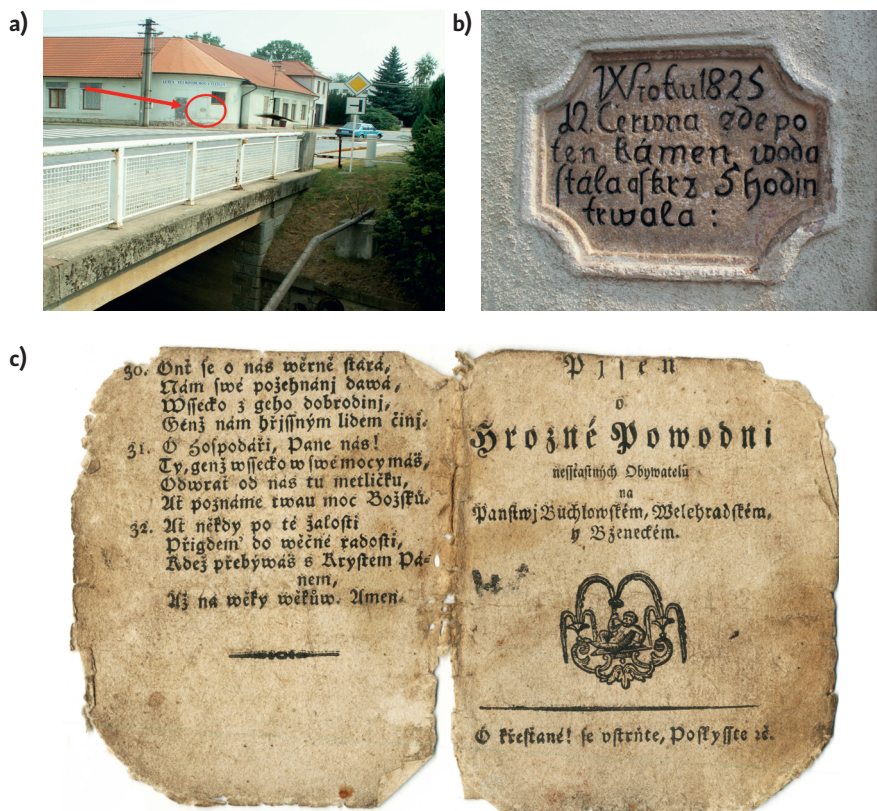 a)
b)
W roku 1825
d 12. Cerwna zde po
ten kámen woda
ſtála aſkrz 5 hodin
trwala :
c)
30. Onť ſe o nás wěrně ſtará,
Nám ſwé požehnánj dawá,
Wſſecko z geho dobrodinj,
Genž nám hřjſſným lidem činj.
31. Ó Hoſpodáři, Pane nás!
Ty, genž wſſecko w ſwé mocy máš,
Odwrať od nás tu metličku,
Ať poznáme twau moc Božſkú.
32. Ať někdy po té žaloſti
Přigdem' do wěčné radoſti,
Kdež přebýwáš s Kryſtem Pá-
nem,
Až na wěky wěkůw. Amen.
Pjſeň
o
Hrozné Powodni
neſſťaſtných Obywatelů
na
Panſtwj Buchlowſkém, Welehradſkém,
y Bzeneckém.
Ó křeſťané! ſe vſtrňte, Poſkyſſte ꝛc.